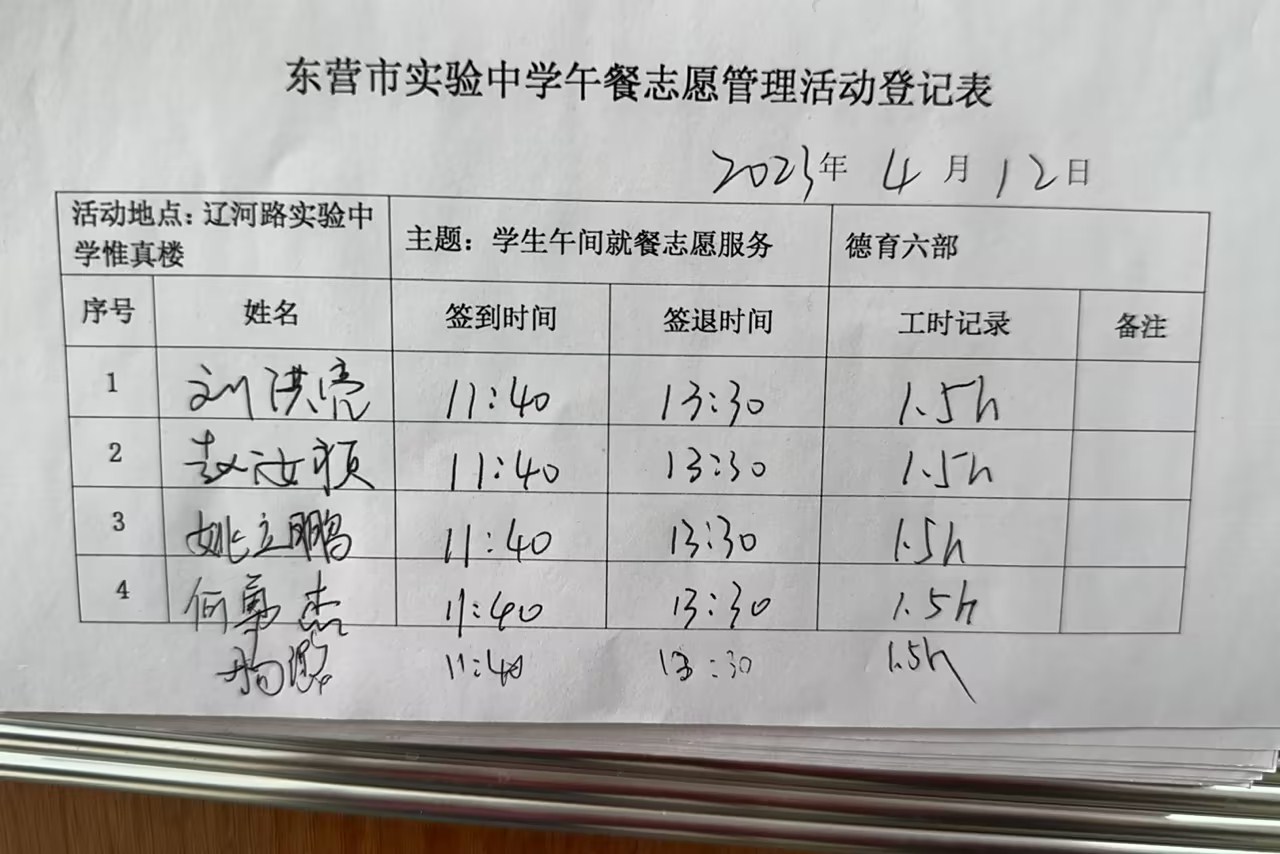 东营市实验中学午餐志愿管理活动登记表
2023年 4月12日
活动地点：辽河路实验中学惟真楼 主题：学生午间就餐志愿服务 德育六部
序号 姓名 签到时间 签退时间 工时记录 备注
1 刘洪亮 11:40 13:30 1.5h
2 赵汝颖 11:40 13:30 1.5h
3 姚立鹏 11:40 13:30 1.5h
4 何 杰 11:40 13:30 1.5h
11:40 13:30 1.5h